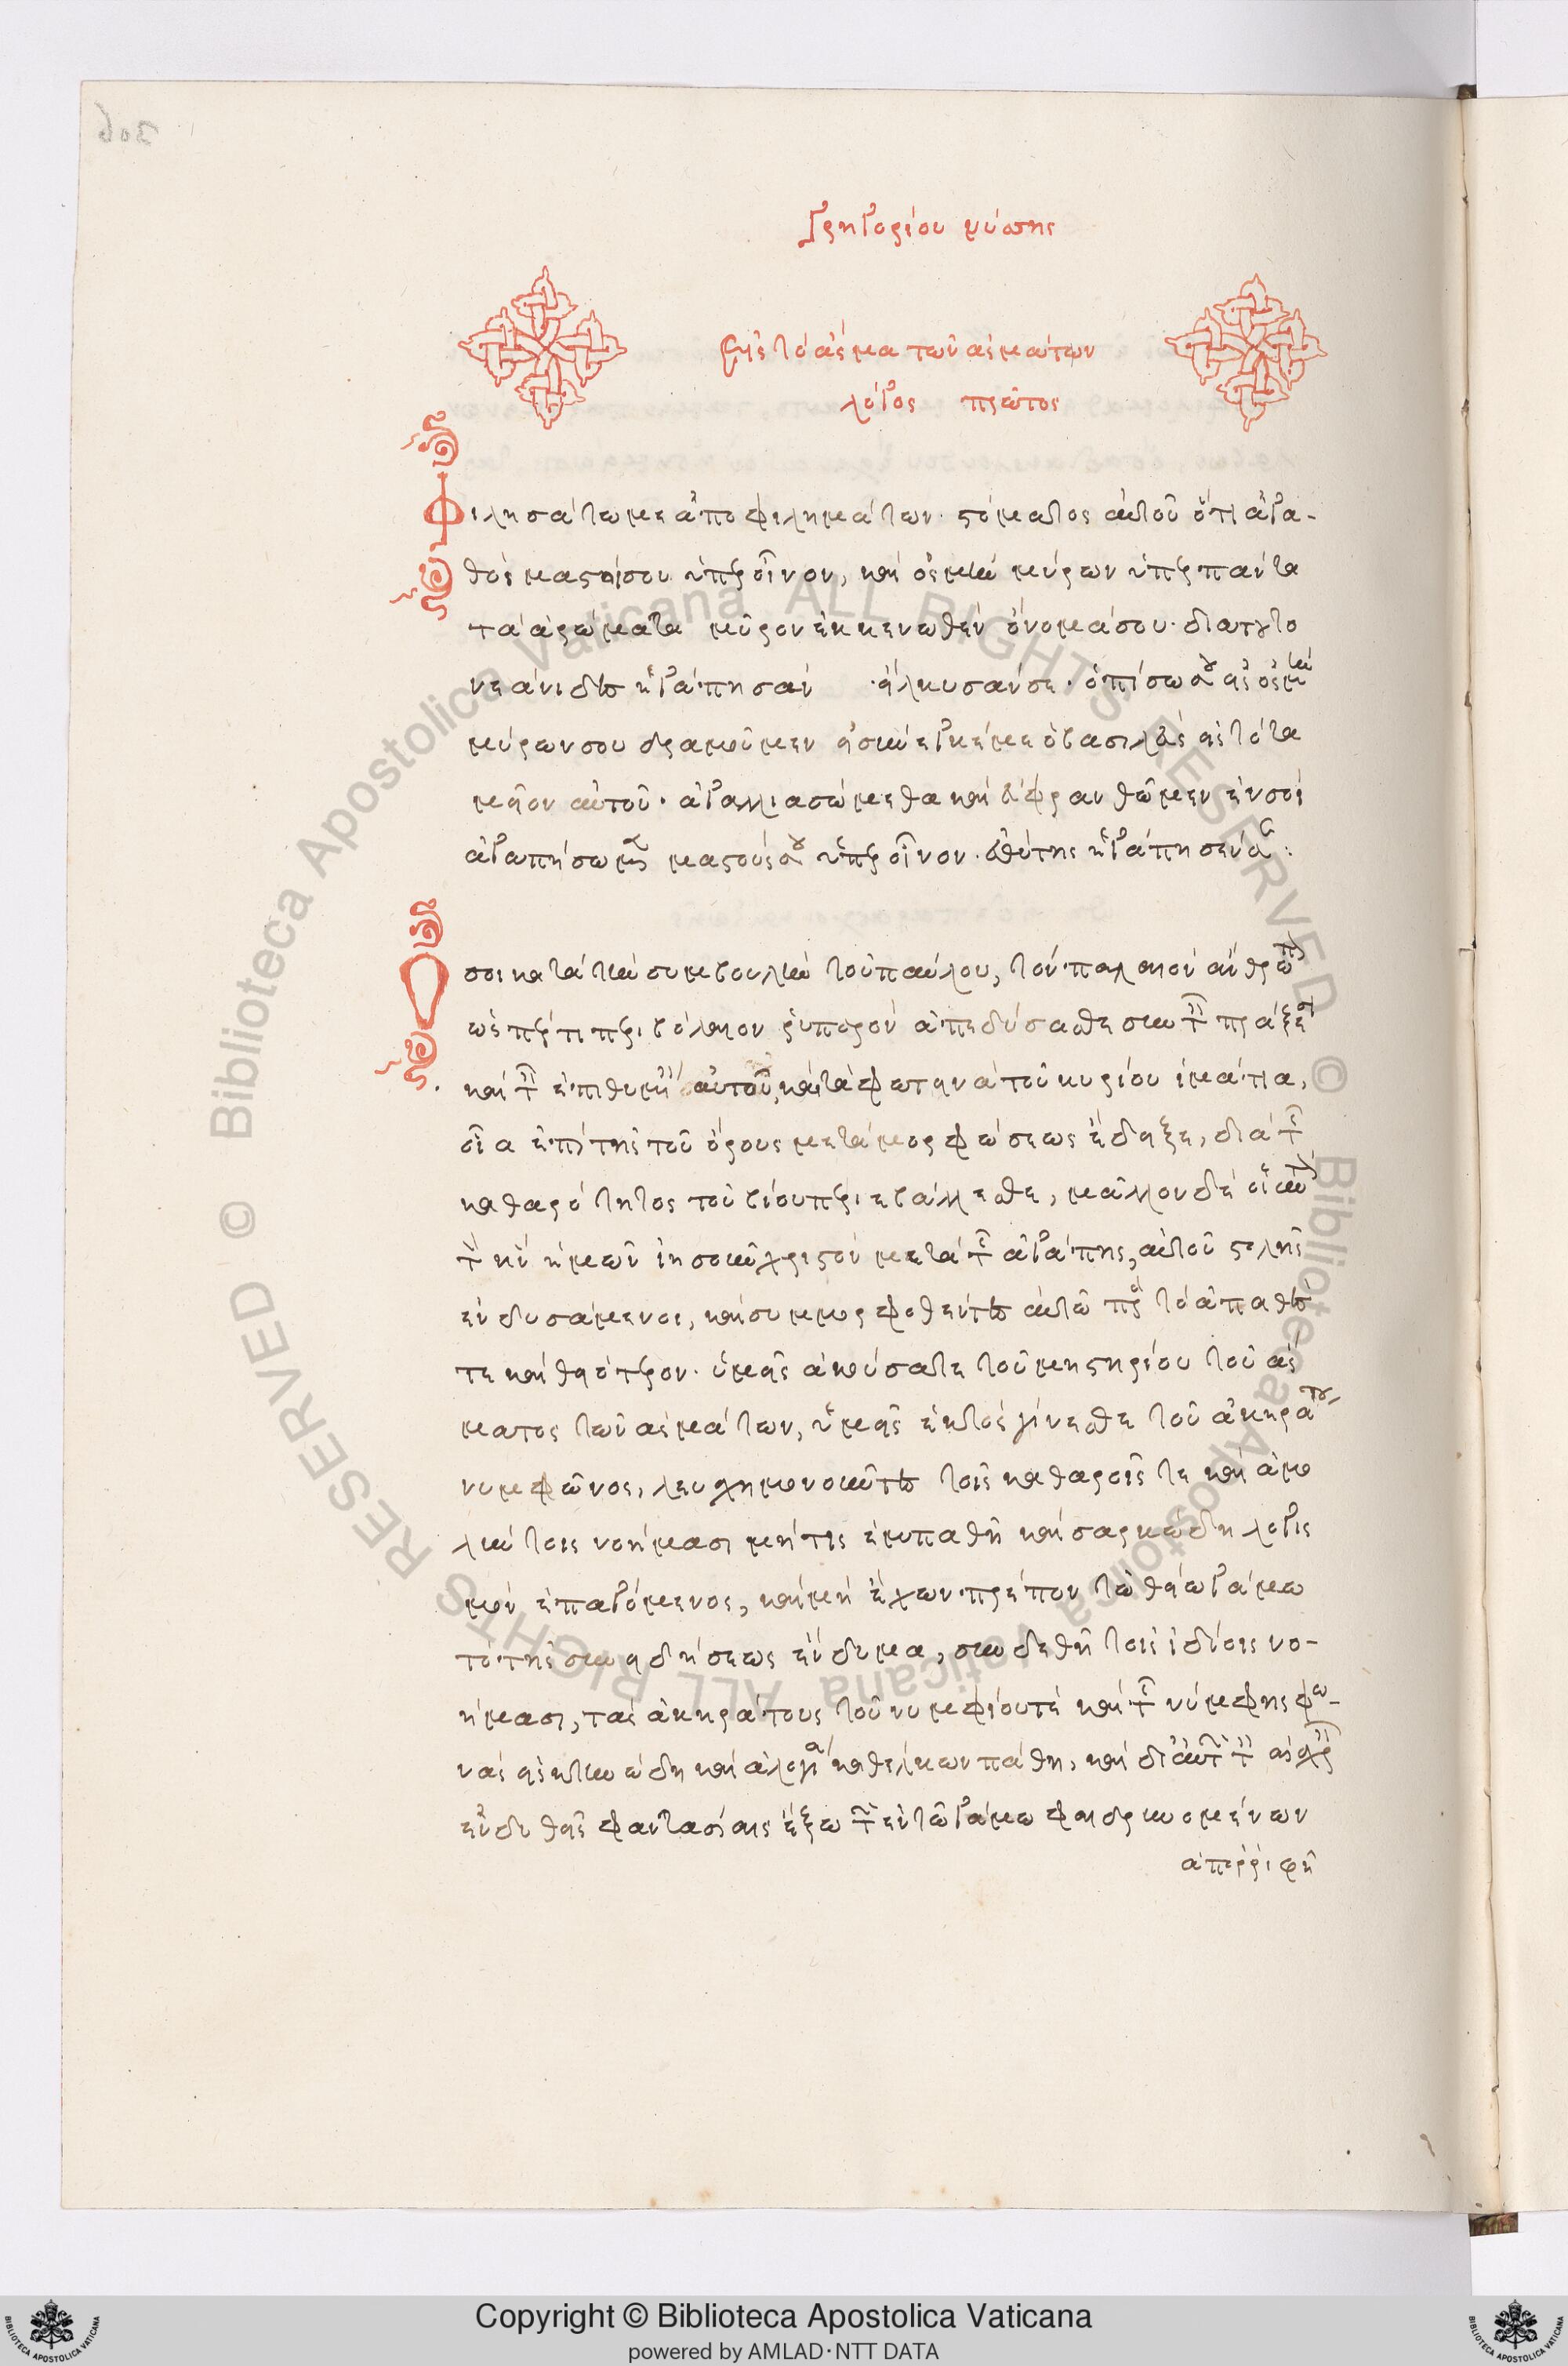 306
Γρηγορίου νύσσης
Εἰς τὸ ἆσμα τῶν ἀσμάτων
λόγος πρῶτος
Φιλησάτω με ἀπὸ φιλημάτων στόματος αὐτοῦ ὅτι ἀγα-
θοὶ μαστοί σου ὑπὲρ οἶνον, καὶ ὀσμὴ μύρων ὑπὲρ πάντα
τὰ ἀρώματα μῦρον ἐκκενωθὲν ὄνομά σου· διατοῦτο
νεάνιδες ἠγάπησαν εἵλκυσάν σε· ὀπίσω σου εἰς ὀσμὴν
μύρων σου δραμοῦμεν εἰσήνεγκέ με ὁ βασιλεὺς εἰς τὸ τα
μεῖον αὐτοῦ· ἀγαλλιασώμεθα καὶ εὐφρανθῶμεν ἐν σοὶ
ἀγαπήσωμεν μαστούς σου ὑπὲρ οἶνον· εὐθύτης ἠγάπησέν σε:
Ὅσοι κατὰ τὴν συμβουλὴν τοῦ παύλου, τὸν παλαιὸν ἄνθρωπον
ὥσπερ τι περιβόλαιον ῥυπαρὸν ἀπεδύσασθε σὺν ταῖς πράξεσι
καὶ ταῖς ἐπιθυμίαις αὐτοῦ, καὶ τὰ φωτεινὰ τοῦ κυρίου ἱμάτια,
οἷα ἐπὶ τῆς τοῦ ὄρους μεταμορφώσεως ἔδειξε, διὰ τῆς
καθαρότητος τοῦ βίου περιεβάλλεσθε, μᾶλλον δὲ οἱ αὐτὸν
τὸν κύριον ἡμῶν ἰησοῦν χριστὸν μετὰ τῆς ἀγάπης, αὐτοῦ στολῆς
ἐνδυσάμενοι, καὶ συμμορφοθέντες αὐτῶ πρὸς τὸ ἀπαθές
τε καὶ θειότερον· ὑμεῖς ἀκούσατε τοῦ μυστηρίου τοῦ ἄσ
ματος τῶν ἀσμάτων, ὑμεῖς ἐντὸς γίνεσθε τοῦ ἀκηράτου
νυμφῶνος, λευχημονοῦντες τοῖς καθαροῖς τε καὶ ἀμο
λύντοις νοήμασι μή τις ἐμπαθῆ καὶ σαρκώδη λογισ
μὸν ἐπαγόμενος, καὶ μὴ ἔχων πρέπον τῶ θείω γάμω
τὸ τῆς συνειδήσεως ἔνδυμα, συνδεθῆ τοῖς ἰδίοις νο-
ήμασι, τὰς ἀκηράτους τοῦ νυμφίου τὲ καὶ τῆς νύμφης φω-
νὰς εἰς κτηνώδη καὶ ἄλογα καθέλκων πάθη, καὶ δι' αὐτῶν ταῖς αἰσχραῖς
ἐνδυθεὶς φαντασίαις ἔξω τῶν ἐν τῶ γάμω φαιδρυνομένων
ἀπορριφῆ
Copyright © Biblioteca Apostolica Vaticana
powered by AMLAD·NTT DATA
© Biblioteca Apostolica Vaticana ALL RIGHTS RESERVED © Biblioteca Apostolica Vaticana ALL RIGHTS RESERVED
BIBLIOTECA APOSTOLICA VATICANA
BIBLIOTECA APOSTOLICA VATICANA